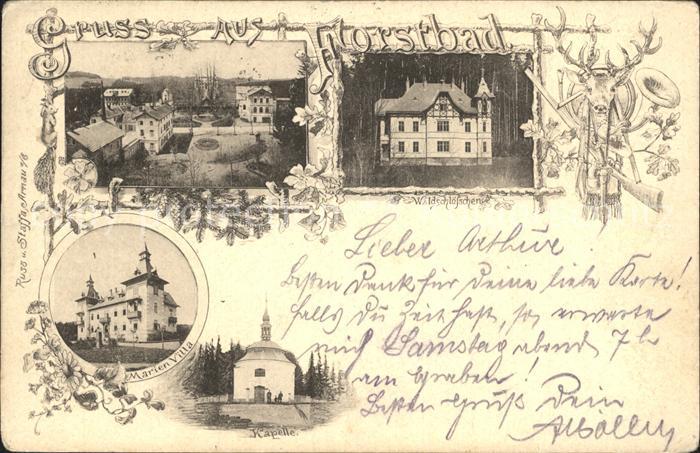 Gruss aus Forstbad
Waldschlösschen
Russ u. Staffa, Arnau
Marien Villa
Kapelle.
Lieber Arthur
Besten Dank für Deine liebe Karte!
falls Du Zeit hast, so erwarte
mich Samstag abend 7 h
am Graben!
Besten Gruß Dein